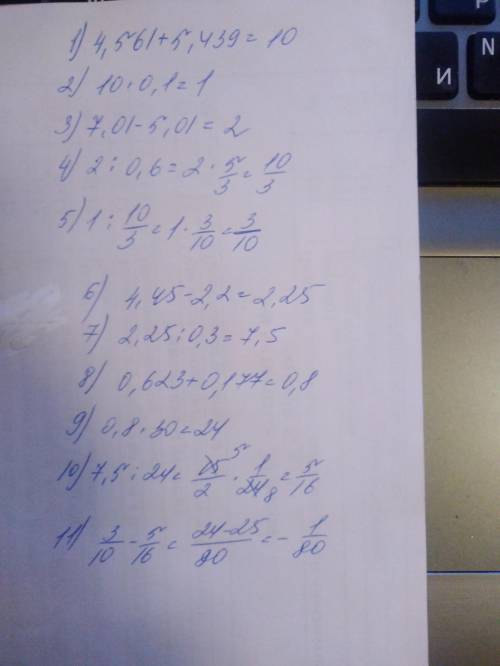 1) 4,561+5,439=10
2) 10·0,1=1
3) 7,01-5,01=2
4) 2:0,6=2·5/3=10/3
5) 1:10/3=1·3/10=3/10
6) 4,45-2,2=2,25
7) 2,25:0,3=7,5
8) 0,623+0,177=0,8
9) 0,8·30=24
10) 7,5:24=15/2 5·1/24 8=5/16
11) 3/10-5/16=24-25/80=-1/80
И
N